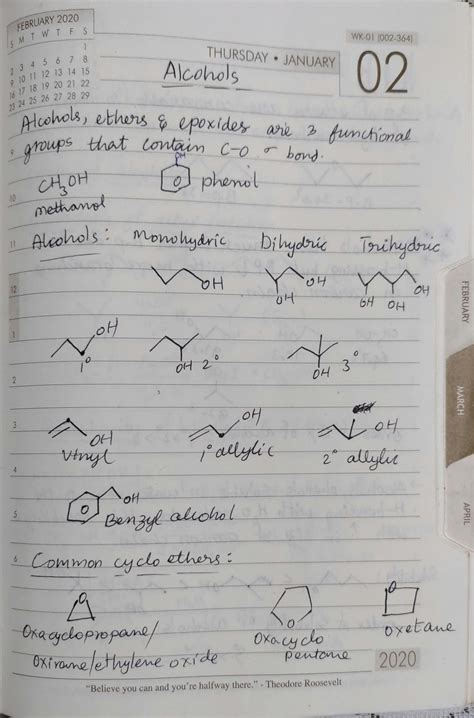 FEBRUARY 2020
S M T W T F S
1
2 3 4 5 6 7 8
9 10 11 12 13 14 15
16 17 18 19 20 21 22
23 24 25 26 27 28 29
WK-01 (002-364)
THURSDAY • JANUARY
02
Alcohols
Alcohols, ethers & epoxides are 3 functional
9 groups that contain C-O σ bond.
OH
CH3OH
O phenol
10
methanol
11 Alcohols: Monohydric Dihydric Trihydric
12
OH OH OH
OH OH OH
1
OH
1° OH 2° OH 3°
2
3
OH OH
OH
Vinyl 1° allylic 2° allylic
4
OH
5
Benzyl alcohol
6 Common cyclo ethers:
O O
O
Oxacyclopropane/ Oxacyclo oxetane
Oxirane/ethylene oxide pentane
2020
"Believe you can and you're halfway there." - Theodore Roosevelt
FEBRUARY
MARCH
APRIL